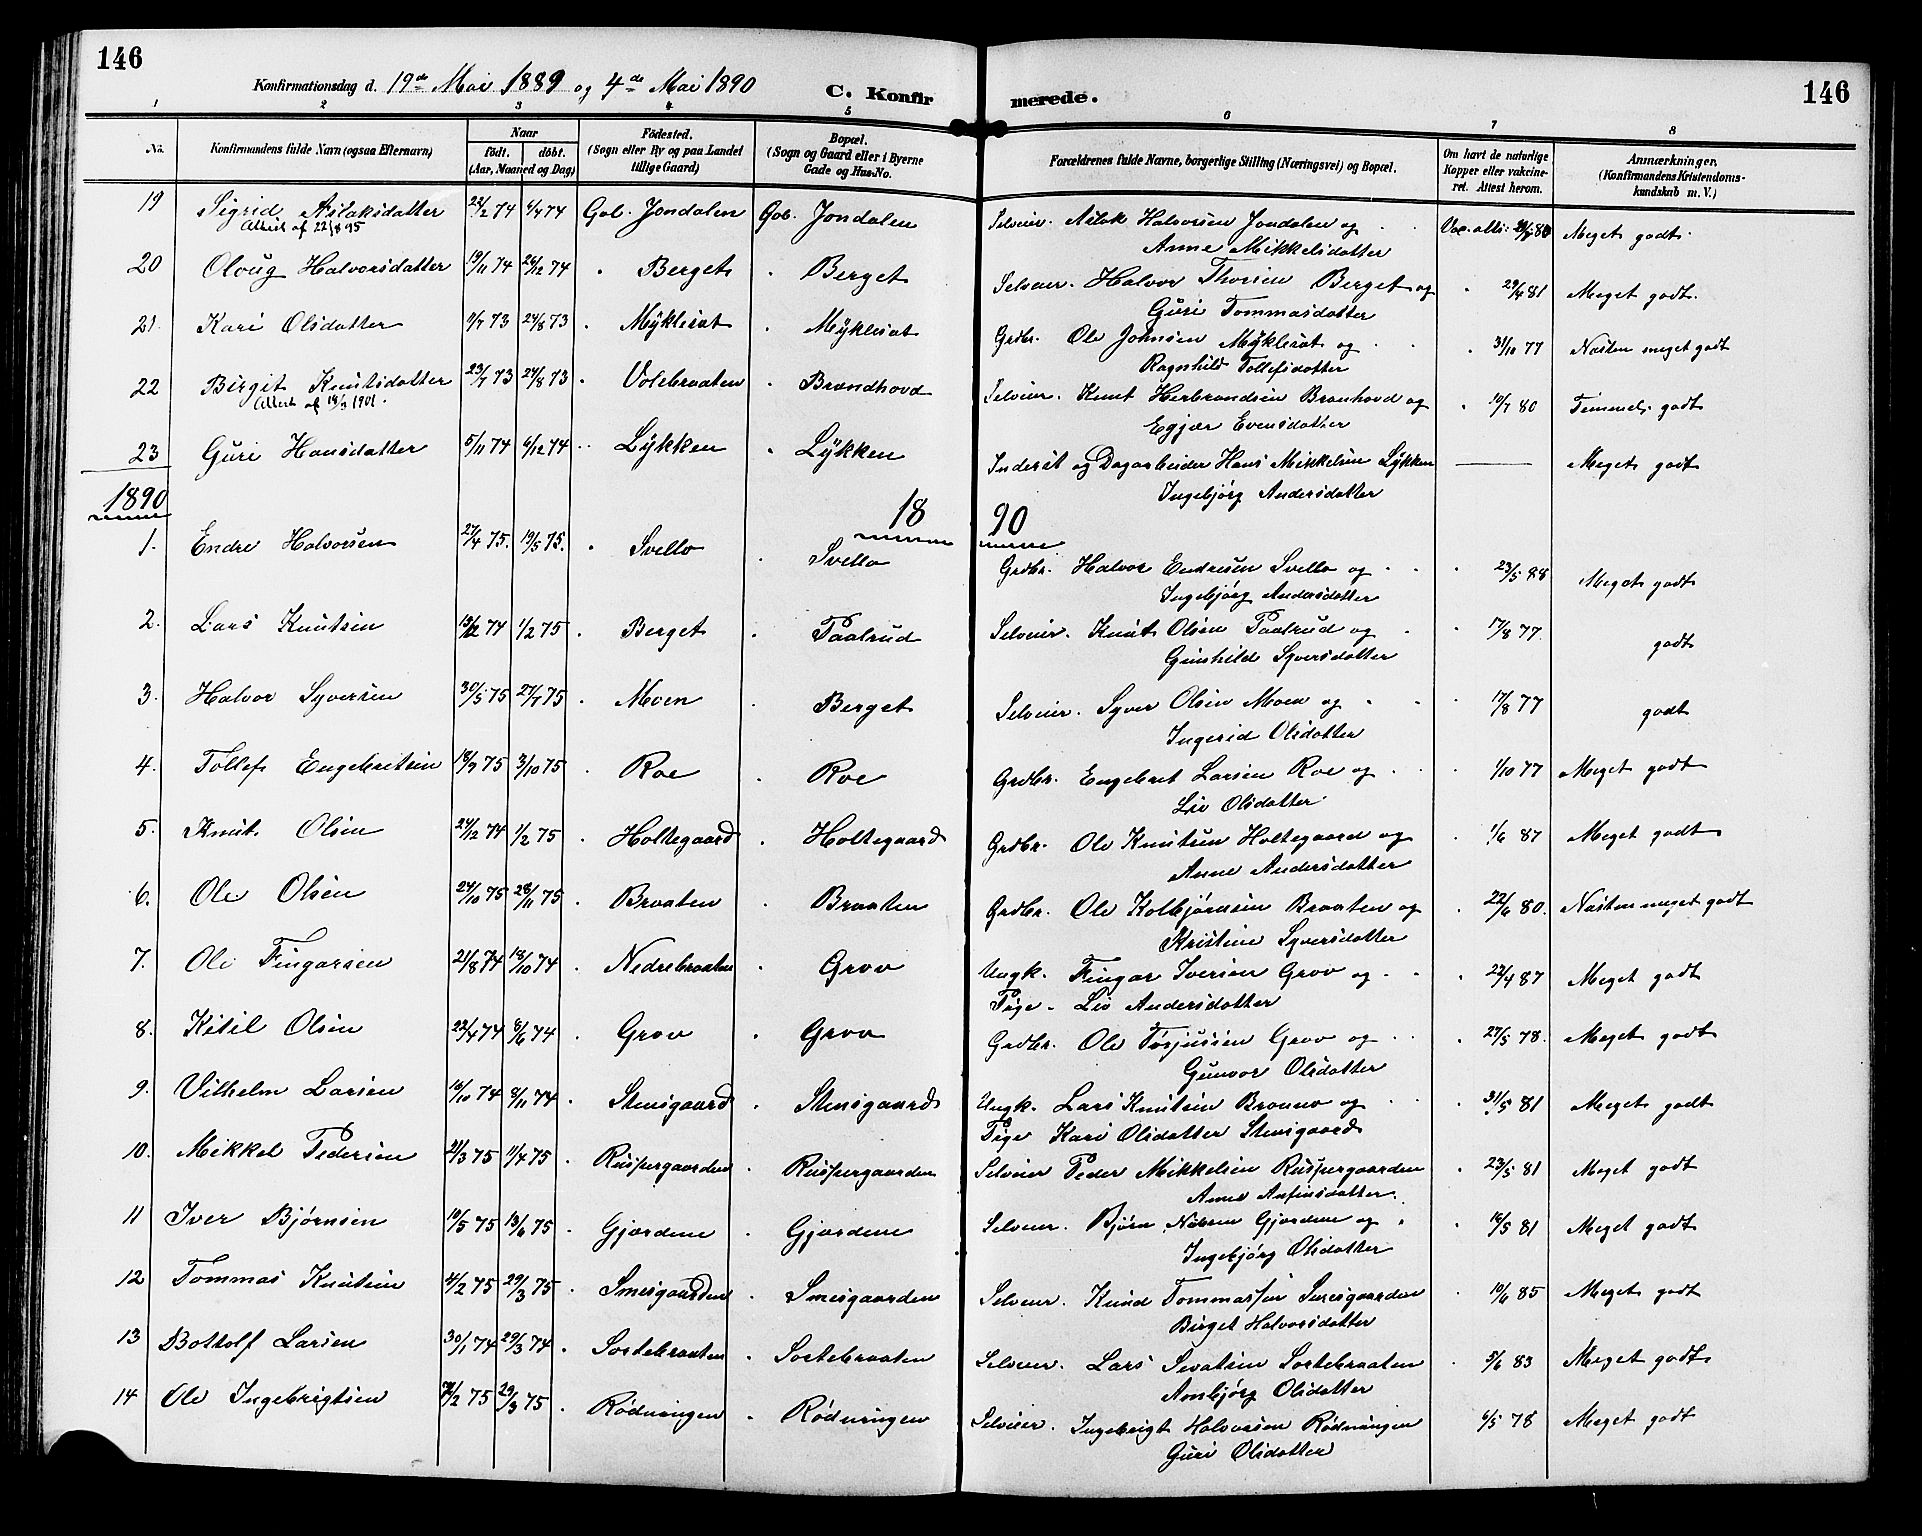 146
146
Konfirmationsdag d. 19de Mai 1889 og 4de Mai 1890
C. Konfirmerede.
1 2 3 4 5 6 7 8
No.
Konfirmandens fulde Navn (ogsaa Efternavn)
Naar
födt. döbt.
(Aar, Maaned og Dag)
Födested.
(Sogn eller By og paa Landet
tillige Gaard)
Bopæl.
(Sogn og Gaard eller i Byerne
Gade og Hus-No.
Forældrenes fulde Navne, borgerlige Stilling (Næringsvei) og Bopæl.
Om havt de naturlige
Kopper eller vakcine-
ret. Attest herom.
Anmærkninger.
(Konfirmandens Kristendoms-
kundskab m. V.)
19 Sigrid Aslaksdatter 22/2 74 6/4 74 Gol. Jondalen Gol. Jondalen Selveier. Aslak Halvorsen Jondalen og Meget godt.
Attest af 22/8 95
Anne Mikkelsdatter
20 Oloug Halvorsdatter 19/11 74 26/12 74 " Berget " Berget Selveier. Halvor Thorsen Berget og " 29/4 81 Meget godt.
Guri Tommasdatter
21. Kari Olsdatter 11/7 73 24/8 73 " Myklesat " Myklesat Grdbr. Ole Johnsen Myklesat og " 31/10 77 Næsten meget godt
Ragnhild Tollefsdatter
22 Birgit Knutsdatter 23/7 73 24/8 73 " Volebraaten " Brandhovd Selveier. Knut Herbrandsen Branhovd og " 10/7 80 Temmel. godt
Attest af 18/3 1901.
Egjær Evensdatter
23 Guri Hansdatter 5/11 74 6/12 74 " Lykken " Lykken Inderst og Dagarbeider Hans Mikkelsen Lykken — Meget godt
Ingebjörg Andersdatter
1890 1890
1. Endre Halvorsen 27/4 75. 19/5 75. " Svello " Svello Grdbr. Halvor Endresen Svello og " 23/5 88 Meget godt
Ingebjörg Andersdatter
2. Lars Knutsen 13/12 74 1/2 75 " Berget " Paalrud Selveier. Knut Olsen Paalrud og " 17/8 77. godt
Gunhild Syversdatter
3. Halvor Syversen 30/5 75 27/7 75 " Moen " Berget Selveier. Syver Olsen Moen og " 17/8 77 godt
Ingerid Olsdatter
4. Tollef Engebretsen 18/9 75 3/10 75 " Roe " Roe Grdbr. Engebret Larsen Roe og " 1/10 77 Meget godt
Liv Olsdatter.
5. Knut Olsen 24/12 74 1/2 75 " Holtegaard " Holtegaard Grdbr. Ole Knutsen Holtegaard og " 1/6 87 Meget godt
Anne Andersdatter
6. Ole Olsen 24/10 75 28/11 75 " Braaten " Braaten Grdbr. Ole Kolbjörnsen Braaten og " 22/6 80. Næsten meget godt
Kristine Syversdatter
7. Ole Fingarsen 21/8 74 18/10 74 " Nedrebraaten " Grov Ungk. Fingar Iversen Grov og " 22/4 87 Meget godt
Pige. Liv Andersdatter
8. Kitil Olsen 22/4 74 8/6 74 " Grov " Grov Grdbr. Ole Torjussen Grov og " 27/5 78. Meget godt
Gunvor Olsdatter
9. Vilhelm Larsen 16/10 74 8/11 74 " Stensgaard " Stensgaard Ungk. Lars Knutsen Brenno og " 31/5 81 Meget godt
Pige Kari Olsdatter Stensgaard
10. Mikkel Pedersen 21/3 75 11/4 75 " Ruspergaarden " Ruspergaarden Selveier Peder Mikkelsen Ruspergaarden " 23/5 81 Meget godt
Anne Anfinsdatter.
11 Iver Bjørnsen 10/5 75 13/6 75 " Gjordene " Gjordene Selveier. Bjørn Gjordene og " 16/5 81 Meget godt
Ingebjörg Olsdatter
12 Tommas Knutsen 4/2 75 29/3 75 " Smesgaarden " Smesgaarden Selveier. Knud Tommassen Smesgaarden " 10/6 85 Meget godt
Birget Halvorsdatter
13 Bottolf Larsen 30/1 74 29/3 74 " Sortebraaten " Sortebraaten Selveier. Lars Sevatsen Sortebraaten " 5/6 83 Meget godt
Annbjörg Olsdatter
14 Ole Ingebrigtsen 2 75 29/3 75 " Rödningen " Rödningen Selveier. Ingebrigt Halvorsen Rödningen 6/5 78 Meget godt
Guri Olsdatter